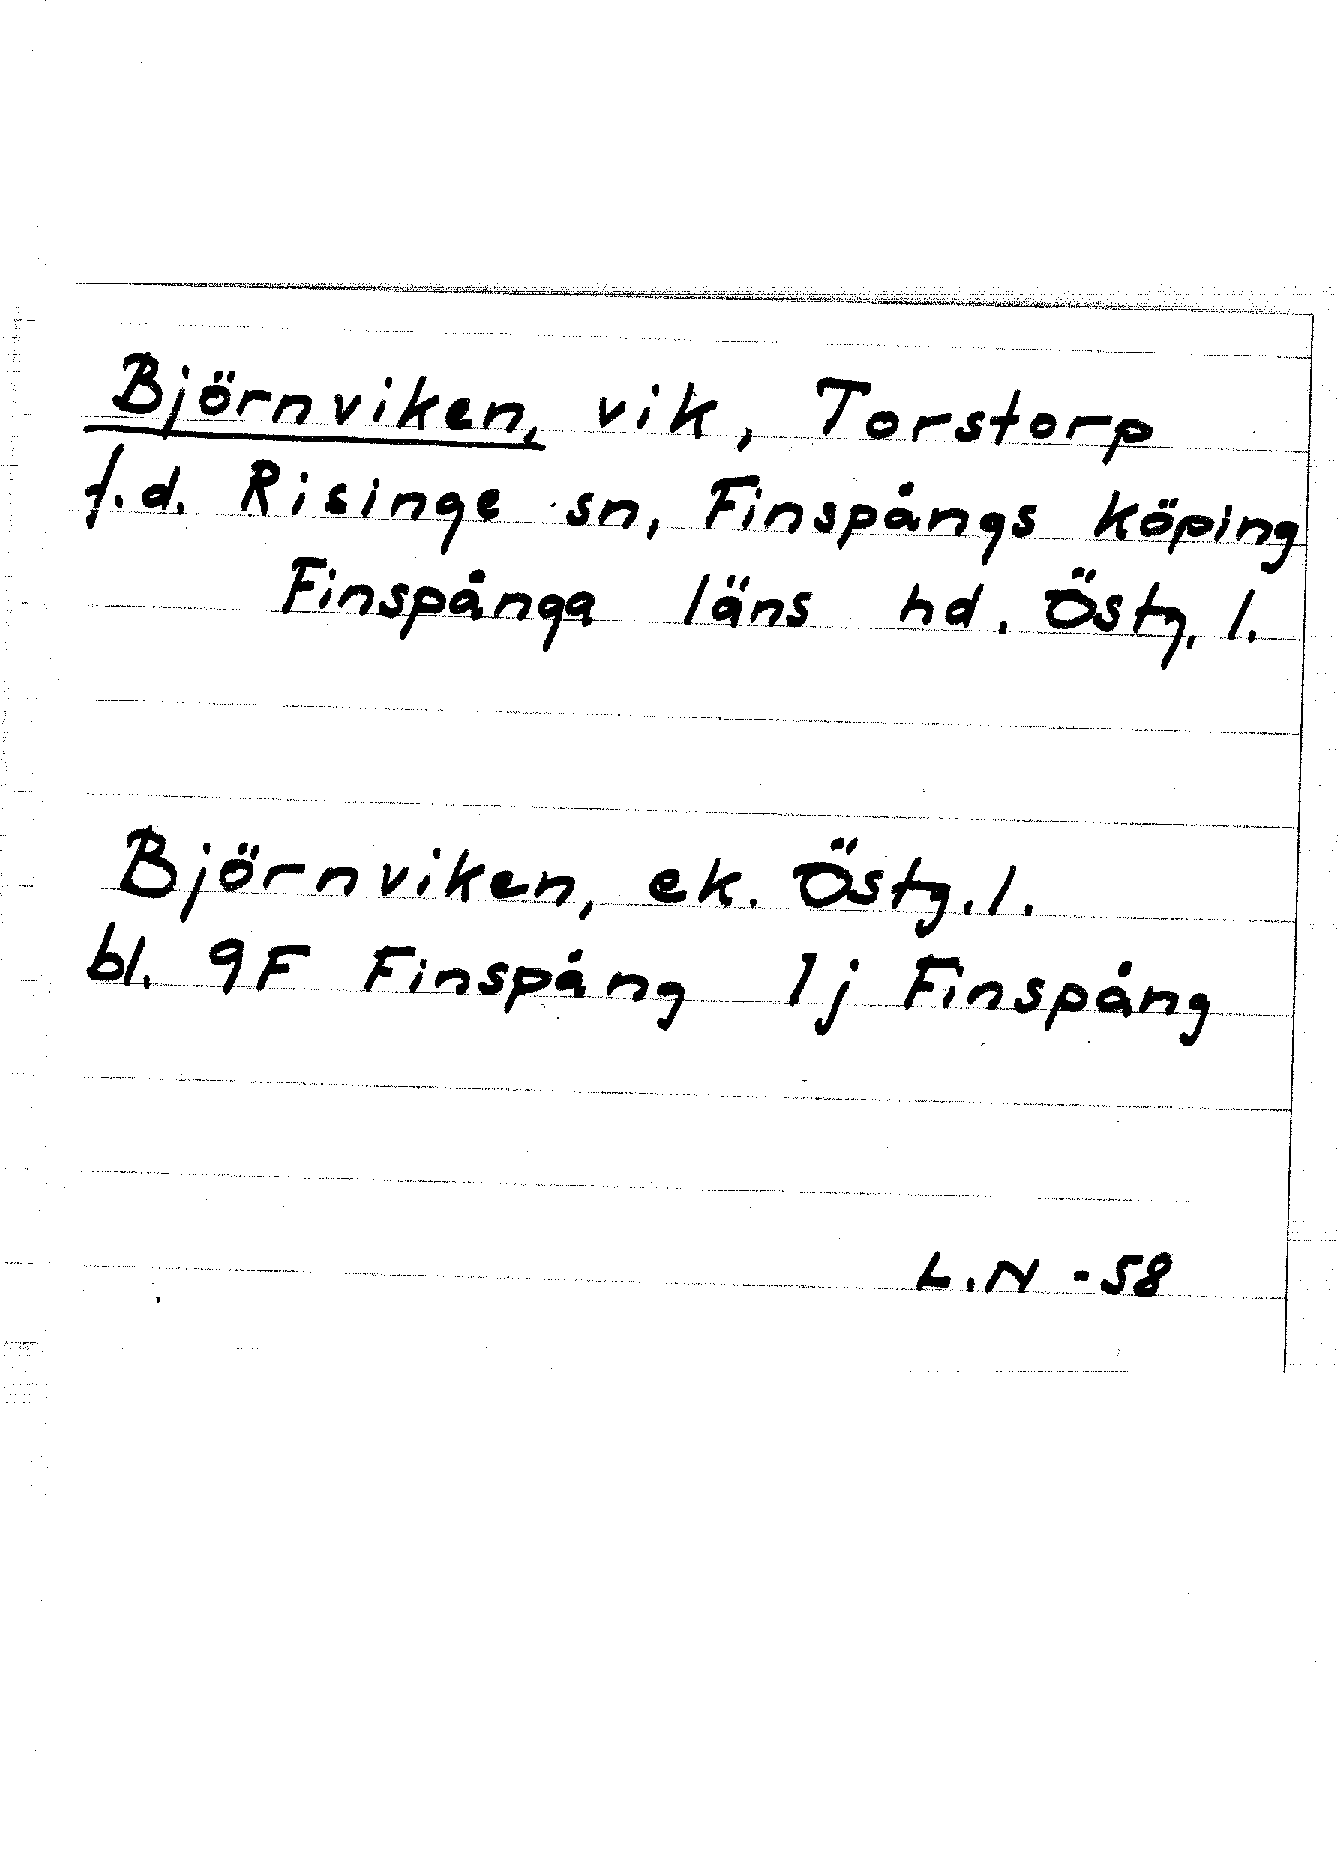 Björnviken, vik, Torstorp
f.d. Risinge sn, Finspångs köping
Finspånga läns hd. Östg. l.
Björnviken, ek. Östg. l.
bl. 9F Finspång 1j Finspång
L.N -58